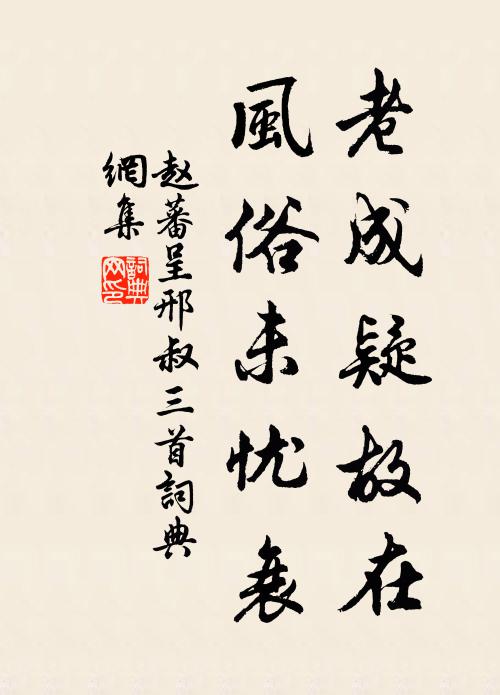 老成疑故在
風俗未忧衰
赵蕃呈邢叔三首詞典
網集
詞典
网印